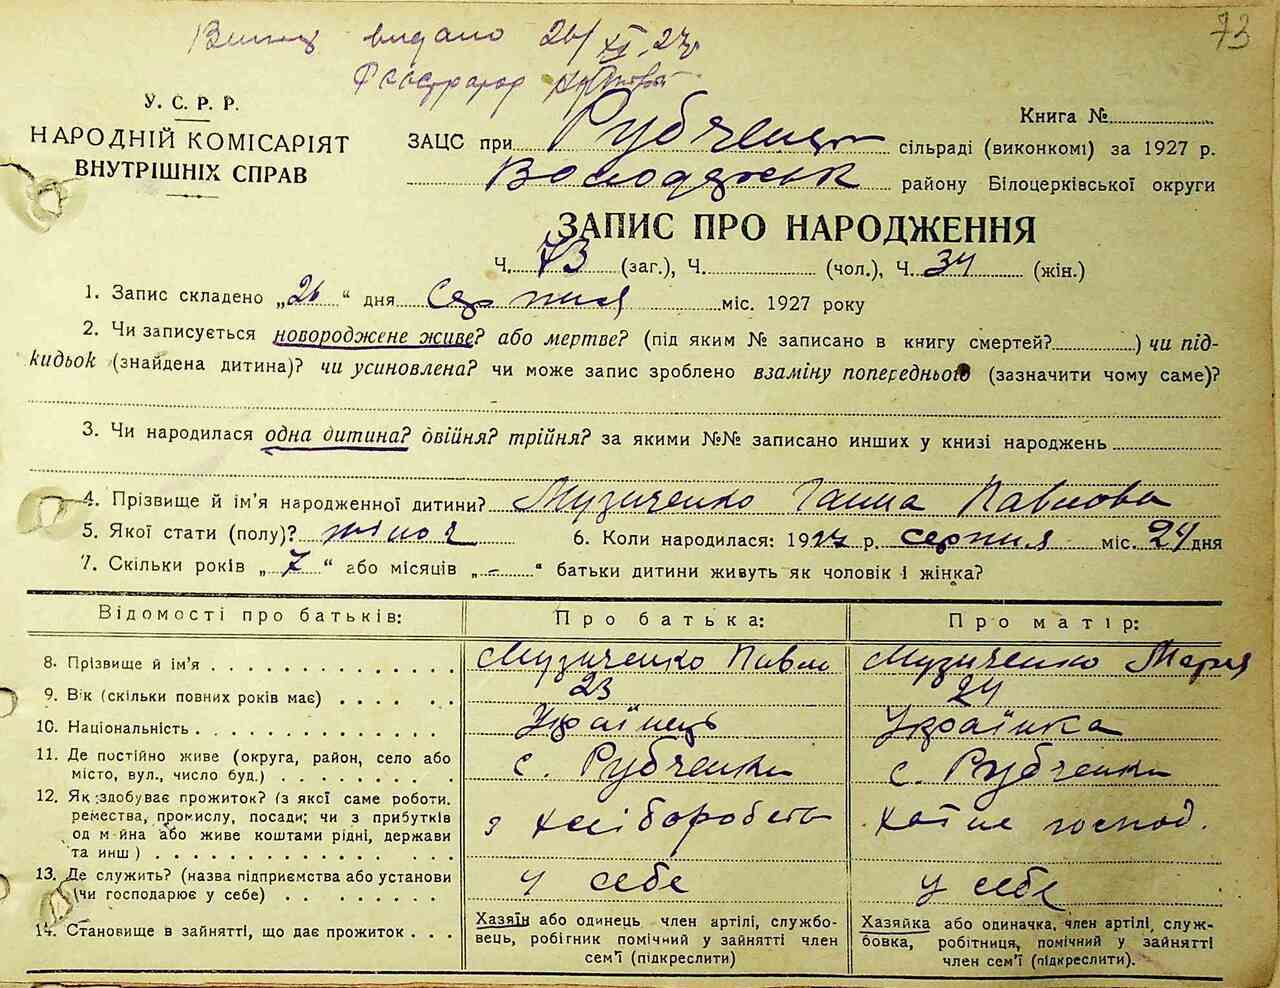 73
видано 26/XI-27р
У. С. Р. Р.
НАРОДНІЙ КОМІСАРІЯТ
ВНУТРІШНІХ СПРАВ
Книга №
ЗАЦС при Рубченський сільраді (виконкомі) за 1927 р.
Володарськ району Білоцерківської округи
ЗАПИС ПРО НАРОДЖЕННЯ
Ч. 73 (заг.), Ч. (чол.), Ч. 34 (жін.)
1. Запис складено „26“ дня серпня міс. 1927 року
2. Чи записується новороджене живе? або мертве? (під яким № записано в книгу смертей? ) чи під-
кидьок (знайдена дитина)? чи усиновлена? чи може запис зроблено взаміну попереднього (зазначити чому саме)?
3. Чи народилася одна дитина? двійня? трійня? за якими №№ записано инших у книзі народжень
4. Прізвище й ім'я народженної дитини? Музиченко Ганна Павлова
5. Якої стати (полу)? жіноч 6. Коли народилася: 1927 р. серпня міс. 24 дня
7. Скільки років „7“ або місяців „-“ батьки дитини живуть як чоловік і жінка?
Відомості про батьків: Про батька: Про матір:
8. Прізвище й ім'я Музиченко Павло Музиченко Мария
9. Вік (скільки повних років має) 23 24
10. Національність Українець Українка
11. Де постійно живе (округа, район, село або
місто, вул., число буд.) с. Рубченки с. Рубченки
12. Як здобуває прожиток? (з якої саме роботи,
ремества, промислу, посади; чи з прибутків
од майна або живе коштами рідні, держави
та инш) з хліборобства хатнє господ.
13. Де служить? (назва підприємства або установи
(чи господарює у себе) у себе у себе
14. Становище в зайнятті, що дає прожиток
Хазяїн або одинець член артілі, службо-
вець, робітник помічний у зайнятті член
сем'ї (підкреслити)
Хазяйка або одиначка, член артілі, служ-
бовка, робітниця, помічний у зайнятті
член сем'ї (підкреслити).